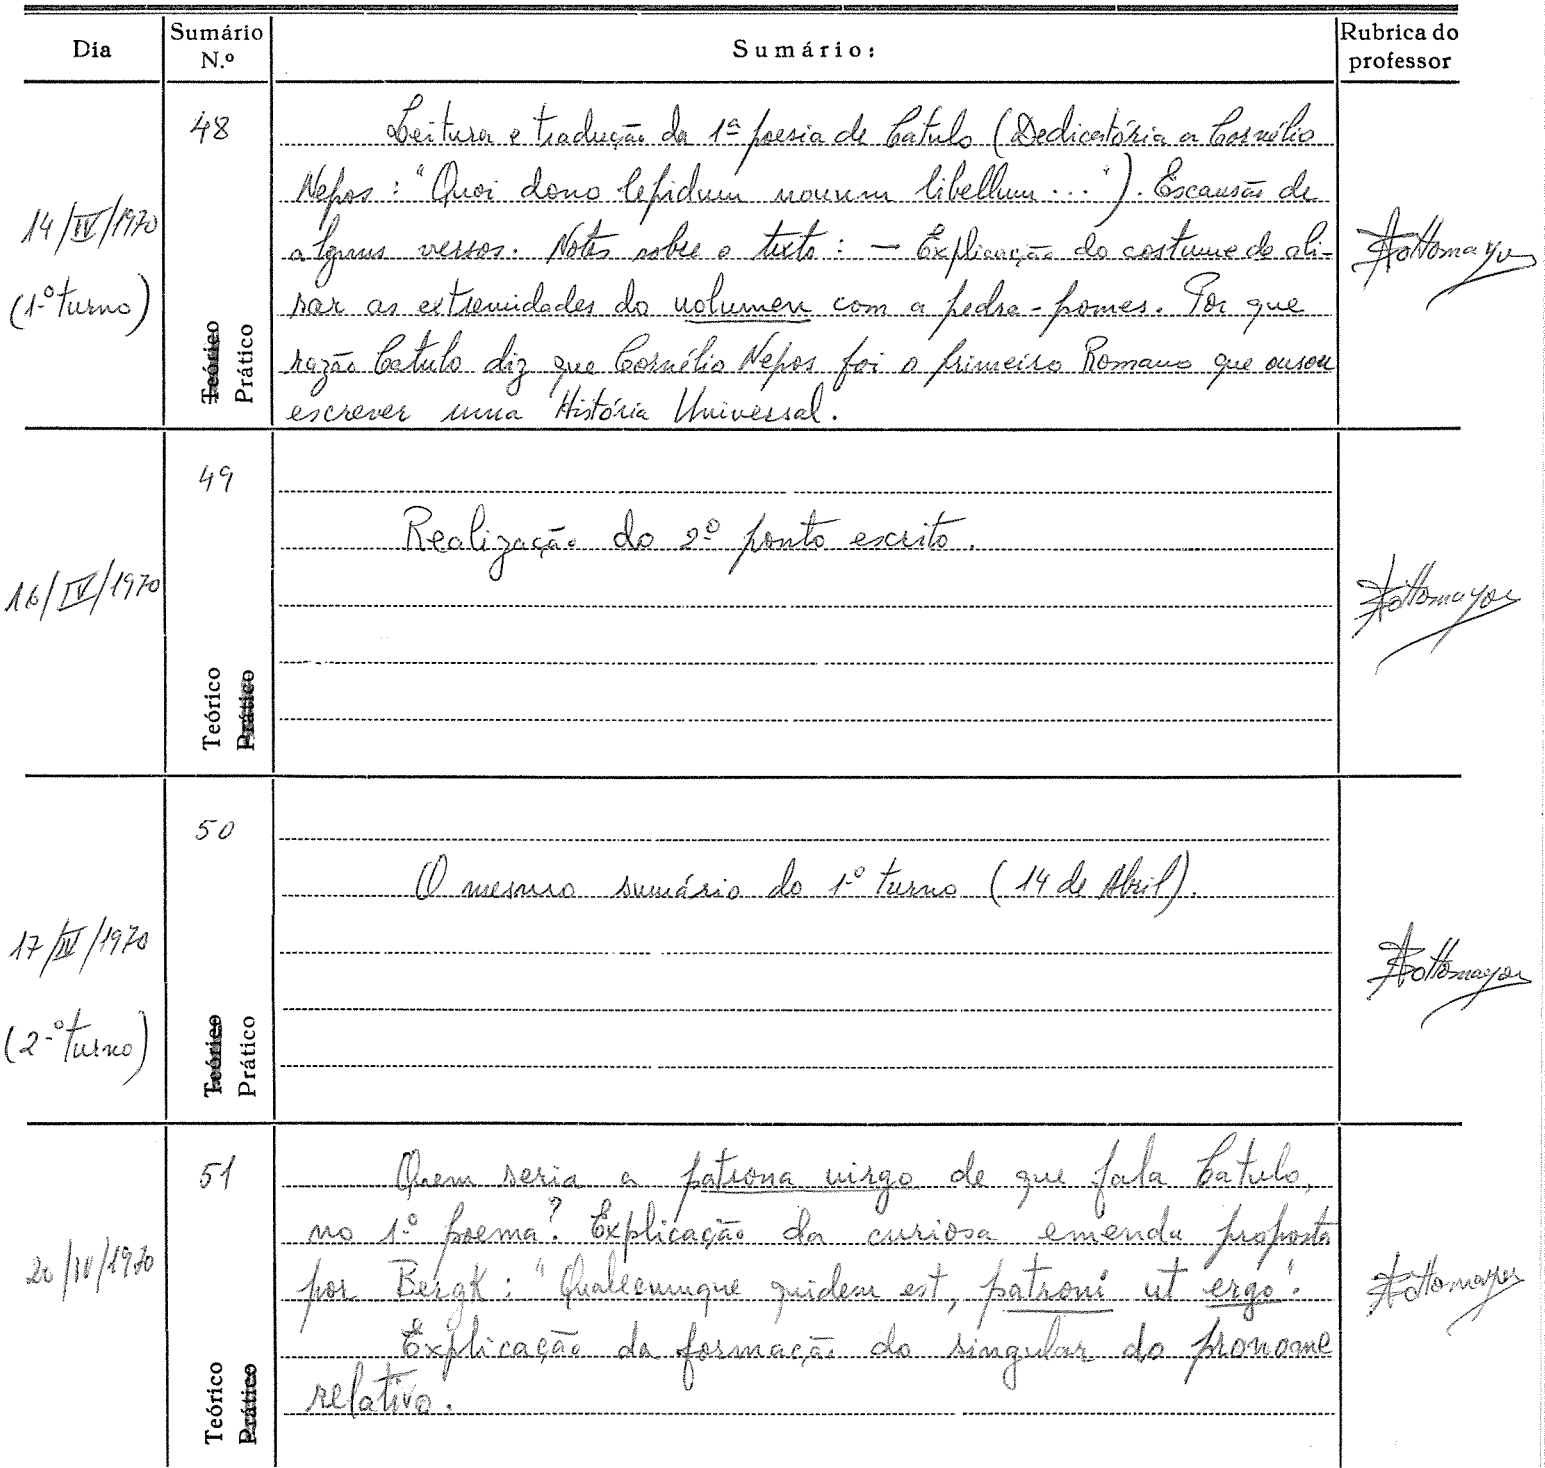 Dia
Sumário
N.º
Sumário:
Rubrica do
professor
14/IV/1970
(1.º turno)
48
Teórico
Prático
Leitura e tradução da 1ª poesia de Catulo (Dedicatória a Cornélio
Nepos: "Quoi dono lepidum nouum libellum..."). Escansão de
alguns versos. Notas sobre o texto: — Explicação do costume de ali-
sar as extremidades do uolumen com a pedra-pomes. Por que
razão Catulo diz que Cornélio Nepos foi o primeiro Romano que ousou
escrever uma História Universal.
Sottomayor
16/IV/1970
49
Teórico
Prático
Realização do 2º ponto escrito.
Sottomayor
17/IV/1970
(2.º turno)
50
Teórico
Prático
O mesmo sumário do 1.º turno (14 de Abril).
Sottomayor
20/IV/1970
51
Teórico
Prático
Quem seria a patrona uirgo de que fala Catulo,
no 1.º poema? Explicação da curiosa emenda proposta
por Bergk: "Qualecumque quidem est, patroni ut ergo".
Explicação da formação do singular do pronome
relativo.
Sottomayor